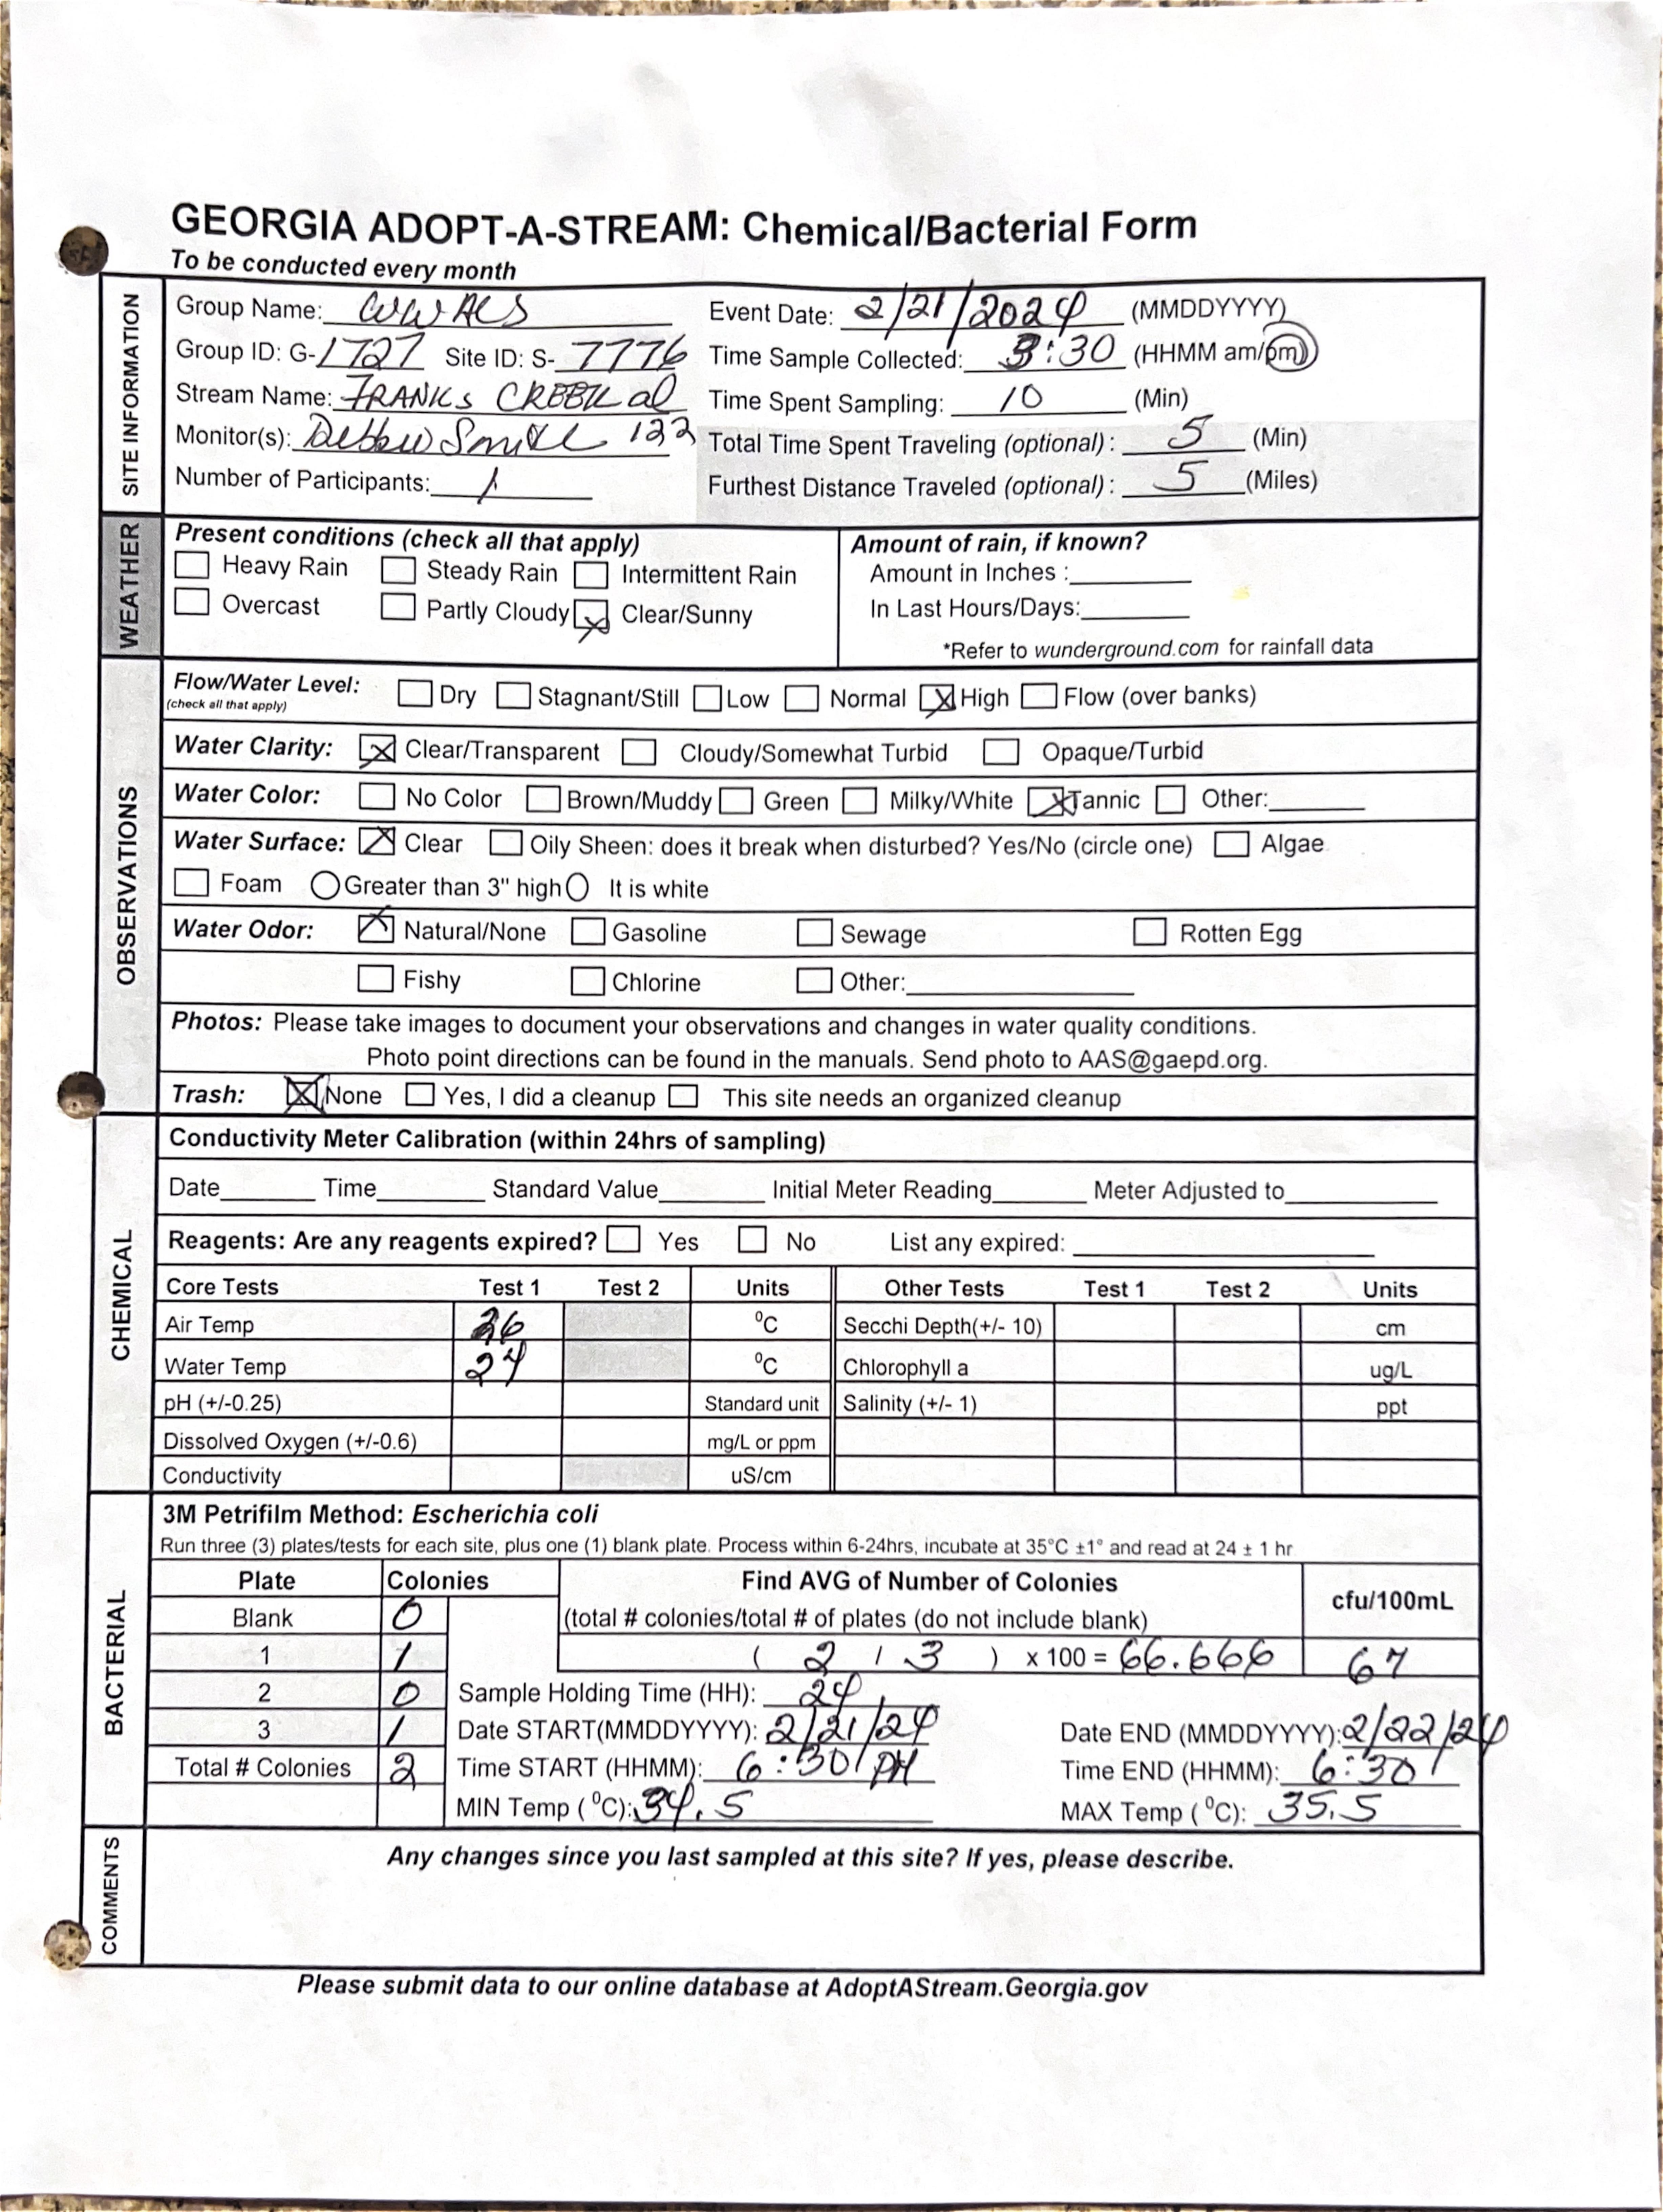 GEORGIA ADOPT-A-STREAM: Chemical/Bacterial Form
To be conducted every month
SITE INFORMATION
Group Name: WWALS Event Date: 2/21/2024 (MMDDYYYY)
Group ID: G-1727 Site ID: S-7776 Time Sample Collected: 3:30 (HHMM am/pm)
Stream Name: FRANKS CREEK al Time Spent Sampling: 10 (Min)
Monitor(s): Debbie 122 Total Time Spent Traveling (optional): 5 (Min)
Number of Participants: 1 Furthest Distance Traveled (optional): 5 (Miles)
WEATHER
Present conditions (check all that apply) Amount of rain, if known?
Heavy Rain Steady Rain Intermittent Rain Amount in Inches :
Overcast Partly Cloudy X Clear/Sunny In Last Hours/Days:
*Refer to wunderground.com for rainfall data
OBSERVATIONS
Flow/Water Level: Dry Stagnant/Still Low Normal X High Flow (over banks)
(check all that apply)
Water Clarity: X Clear/Transparent Cloudy/Somewhat Turbid Opaque/Turbid
Water Color: No Color Brown/Muddy Green Milky/White X Tannic Other:
Water Surface: X Clear Oily Sheen: does it break when disturbed? Yes/No (circle one) Algae
Foam Greater than 3" high It is white
Water Odor: X Natural/None Gasoline Sewage Rotten Egg
Fishy Chlorine Other:
Photos: Please take images to document your observations and changes in water quality conditions.
Photo point directions can be found in the manuals. Send photo to AAS@gaepd.org.
Trash: X None Yes, I did a cleanup This site needs an organized cleanup
CHEMICAL
Conductivity Meter Calibration (within 24hrs of sampling)
Date Time Standard Value Initial Meter Reading Meter Adjusted to
Reagents: Are any reagents expired? Yes No List any expired:
Core Tests Test 1 Test 2 Units Other Tests Test 1 Test 2 Units
Air Temp 26 ºC Secchi Depth(+/- 10) cm
Water Temp 24 ºC Chlorophyll a ug/L
pH (+/-0.25) Standard unit Salinity (+/- 1) ppt
Dissolved Oxygen (+/-0.6) mg/L or ppm
Conductivity uS/cm
BACTERIAL
3M Petrifilm Method: Escherichia coli
Run three (3) plates/tests for each site, plus one (1) blank plate. Process within 6-24hrs, incubate at 35°C ±1° and read at 24 ± 1 hr
Plate Colonies Find AVG of Number of Colonies cfu/100mL
Blank 0 (total # colonies/total # of plates (do not include blank)
1 1 ( 2 / 3 ) x 100 = 66.666 67
2 0 Sample Holding Time (HH): 24
3 1 Date START(MMDDYYYY): 2/21/24 Date END (MMDDYYYY): 2/22/24
Total # Colonies 2 Time START (HHMM): 6:30 PM Time END (HHMM): 6:30
MIN Temp (ºC): 34.5 MAX Temp (ºC): 35.5
COMMENTS
Any changes since you last sampled at this site? If yes, please describe.
Please submit data to our online database at AdoptAStream.Georgia.gov